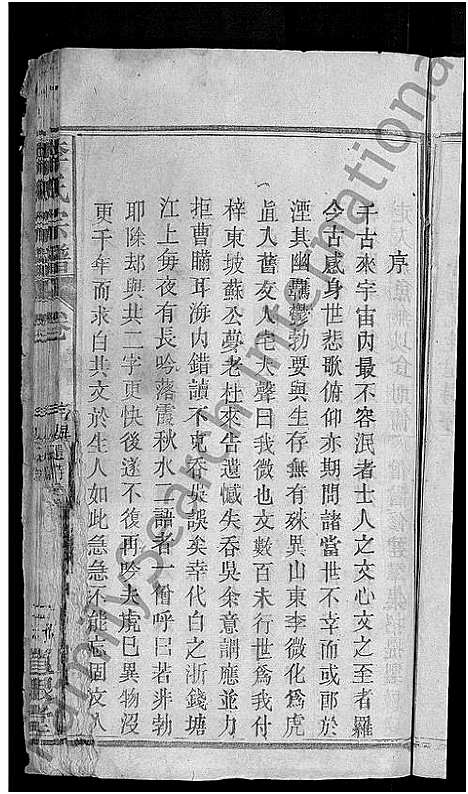 序
千古來宇宙內最不容泯者士人之文心文之至者羅
今古感身世悲歌俯仰亦期問諸當世不幸而或即於
湮其幽鬱勃要與生存無有殊異山東李微化為虎
眞入舊友人宅大聲曰我微也文數百未行世為我付
梓東坡蘇公夢老杜來告遺憾失吞吳余意謂應並力
拒曹瞞耳海內錯讀不克吞吳誤矣幸代白之浙錢塘
江上每夜有長吟落霞秋水二語者一僧呼曰若非勃
耶除却與共二字更快後遂不復再吟夫虎巳異物沒
更千年而求白其文於生人如此急急不能忘固文人
李氏宗譜
卷
隴堂
FamilySearch International